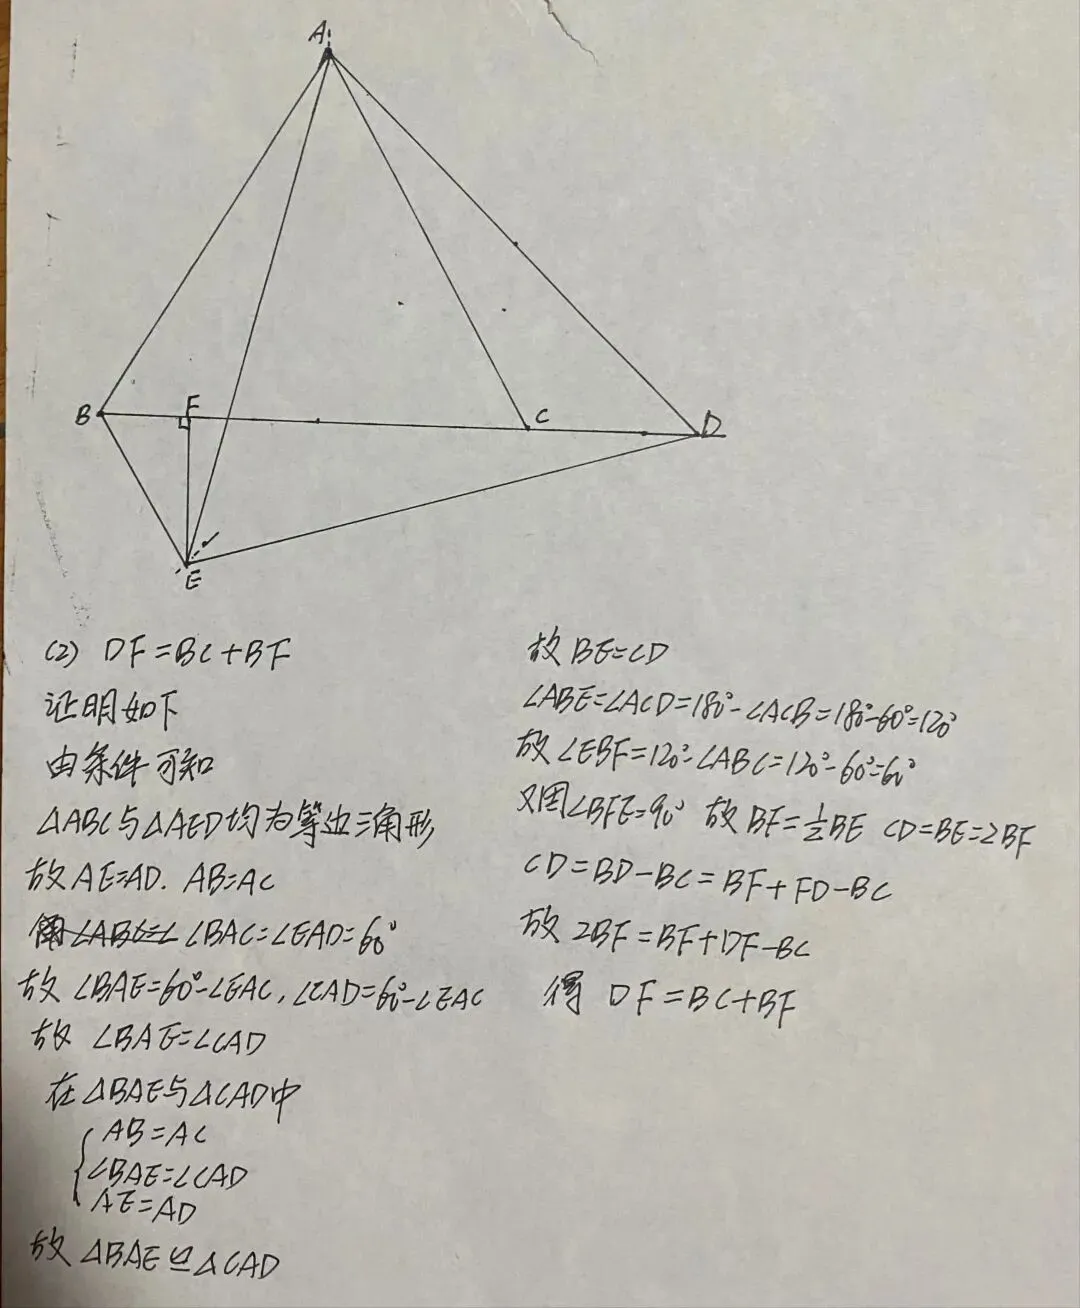 A
B
F
C
D
E
(2) DF=BC+BF
证明如下
由条件可知
△ABC与△AED均为等边三角形
故AE=AD. AB=AC
∠BAC=∠EAD=60°
故 ∠BAE=60°-∠EAC, ∠CAD=60°-∠EAC
故 ∠BAE=∠CAD
在△BAE与△CAD中
AB=AC
∠BAE=∠CAD
AE=AD
故 △BAE≌△CAD
故 BE=CD
∠ABE=∠ACD=180°-∠ACB=180°-60°=120°
故 ∠EBF=120°-∠ABC=120°-60°=60°
又因∠BFE=90° 故 BF=½BE CD=BE=2BF
CD=BD-BC=BF+FD-BC
故 2BF=BF+DF-BC
得 DF=BC+BF